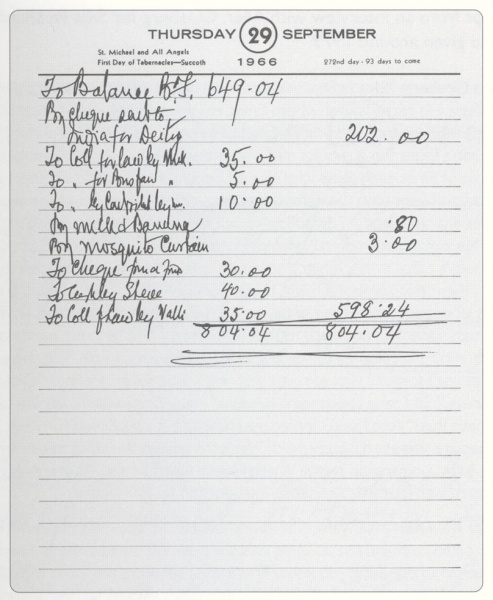 THURSDAY 29 SEPTEMBER
St. Michael and All Angels
First Day of Tabernacles—Succoth
1966
272nd day - 93 days to come
To Balance B/F. 649.04
By Cheque sent to
India for Deity 202.00
To Coll for law by Muk. 35.00
To " for " 5.00
To " by 10.00
By milk & Banana .80
By Mosquito Curtain 3.00
To Cheque from 30.00
To Cash by 40.00
To Coll f law by Valli 35.00 598.24
804.04 804.04